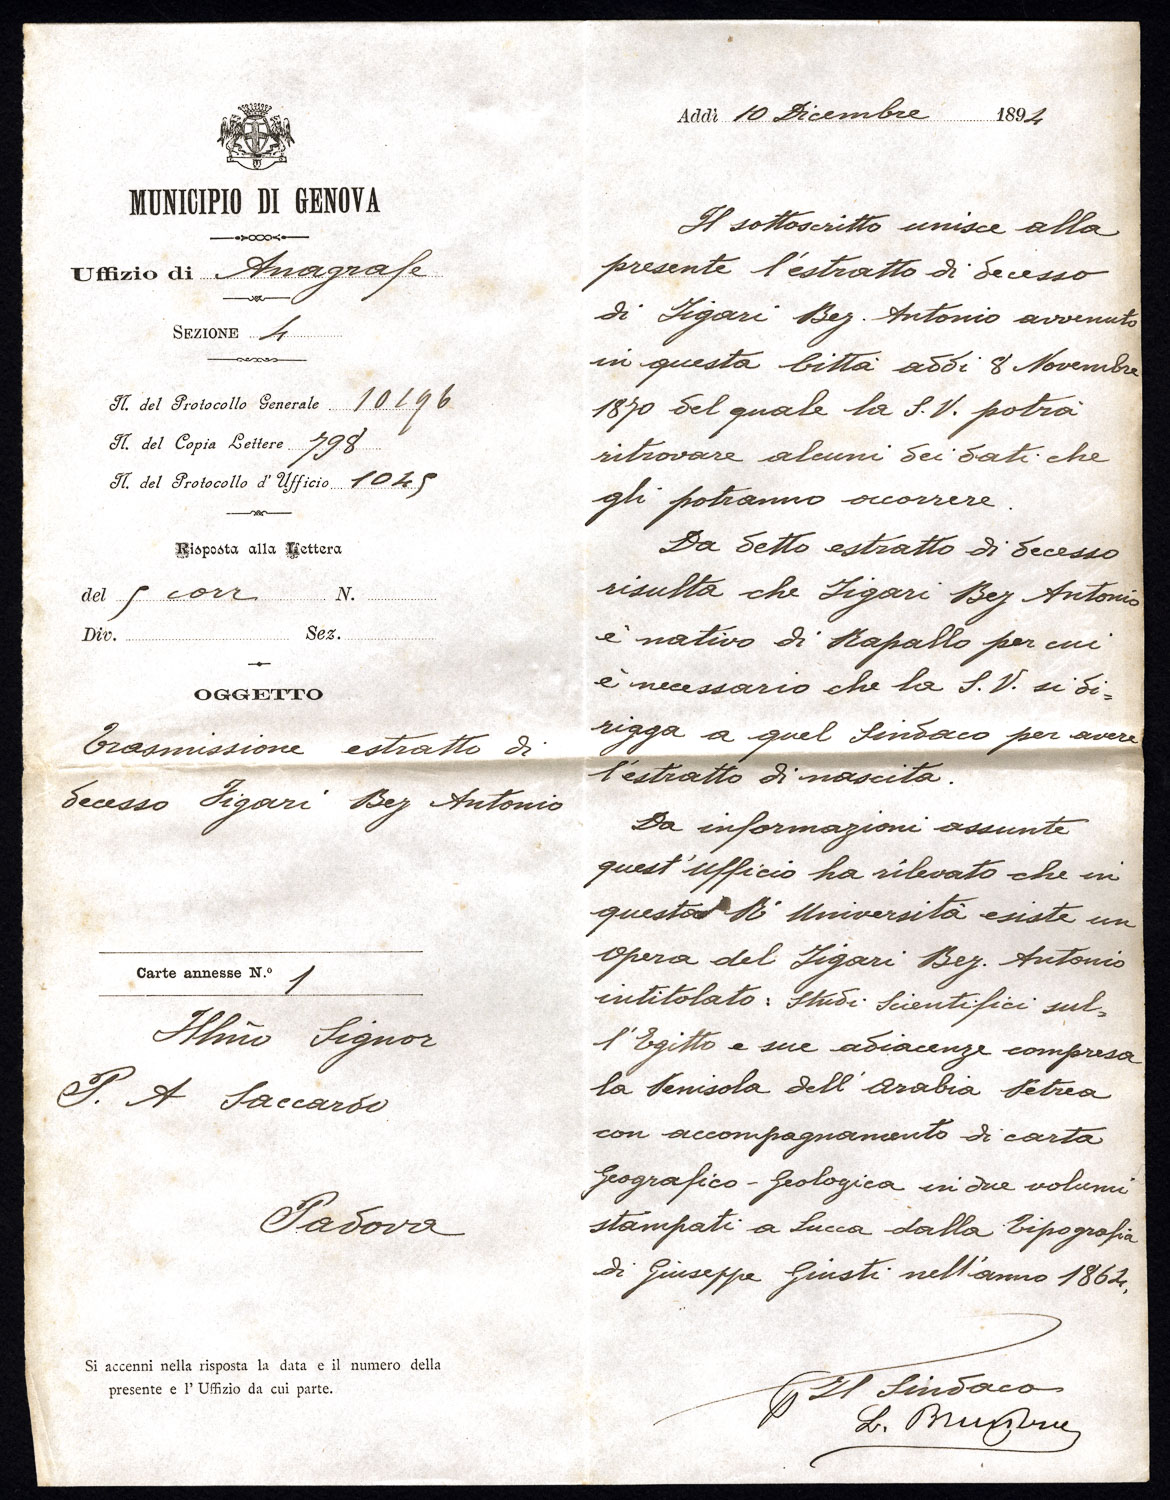 MUNICIPIO DI GENOVA
Uffizio di Anagrafe
SEZIONE 4
N. del Protocollo Generale 10196
N. del Copia Lettere 798
N. del Protocollo d'Ufficio 1045
Risposta alla Lettera
del 5 corr N.
Div. Sez.
OGGETTO
Trasmissione estratto di
decesso Figari Bey Antonio
Carte annesse N.º 1
Illmo Signor
P. A Saccardo
Padova
Si accenni nella risposta la data e il numero della
presente e l'Uffizio da cui parte.
Addì 10 Dicembre 1894
Il sottoscritto unisce alla
presente l'estratto di decesso
di Figari Bey. Antonio avvenuto
in questa Città addi 8 Novembre
1870 del quale la S. V. potrà
ritrovare alcuni dei dati che
gli potranno occorrere.
Da detto estratto di decesso
risulta che Figari Bey Antonio
è nativo di Rapallo per cui
è necessario che la S. V. si di=
rigga a quel Sindaco per avere
l'estratto di nascita.
Da informazioni assunte
quest'Ufficio ha rilevato che in
questa Rª Università esiste un
Opera del Figari Bey. Antonio
intitolato: Studi Scientifici sul=
l'Egitto e sue adiacenze compresa
la Penisola dell'Arabia Petrea
con accompagnamento di carta
Geografico-Geologica in due volumi
stampati a Lucca dalla Tipografia
di Giuseppe Giusti nell'anno 1864.
Il Sindaco